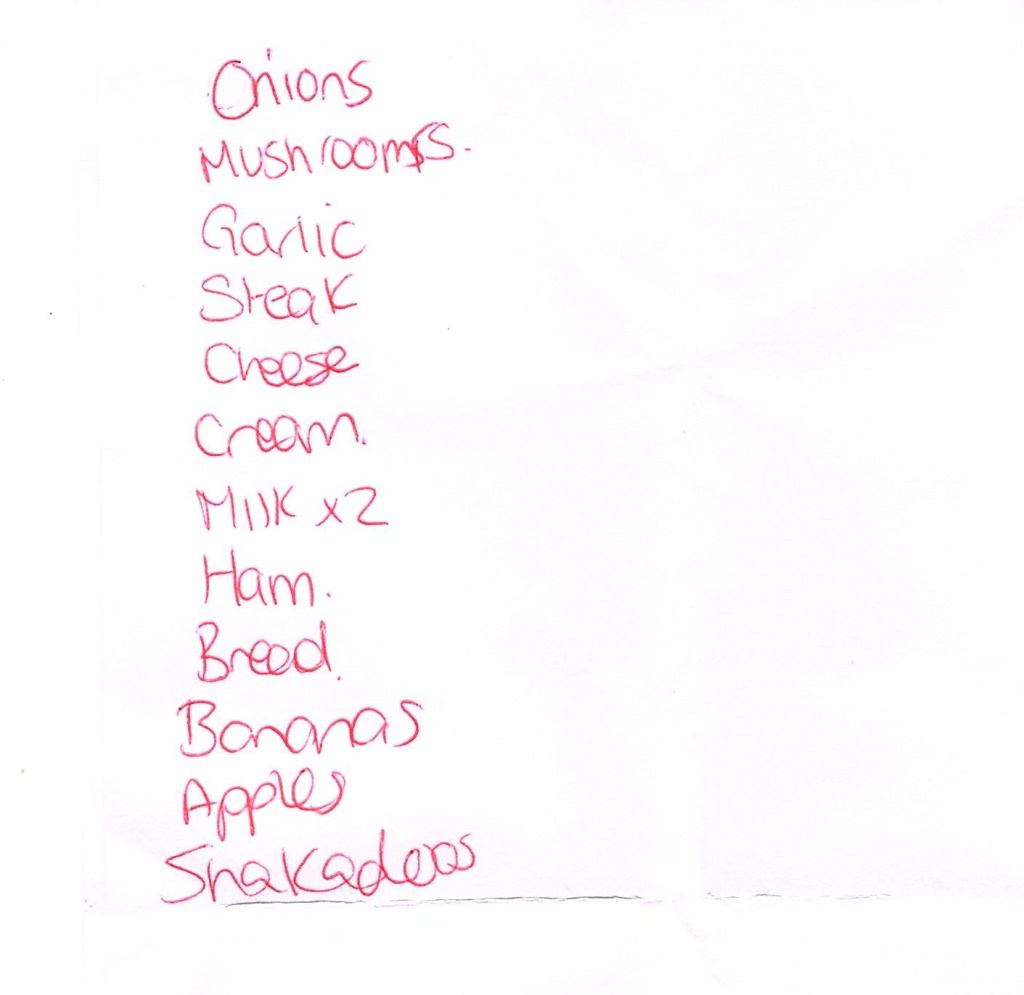 Onions
Mushrooms.
Garlic
Steak
Cheese
Cream.
Milk x2
Ham.
Bread.
Bananas
Apples